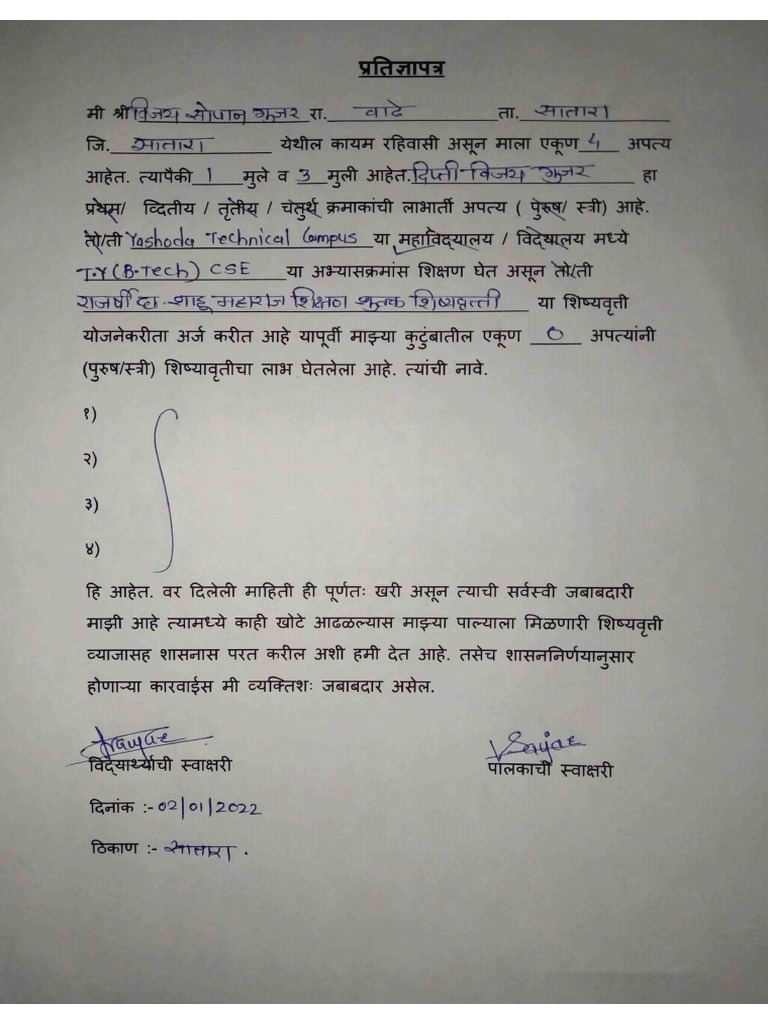 प्रतिज्ञापत्र
मी श्री विजय सोपान गुजर रा. वाढे ता. सातारा
जि. सातारा येथील कायम रहिवासी असून माला एकूण 4 अपत्य
आहेत. त्यापैकी 1 मुले व 3 मुली आहेत. दिप्ती विजय गुजर हा
प्रथम/ व्दितीय / तृतीय / चतुर्थ क्रमाकांची लाभार्ती अपत्य ( पुरुष/ स्त्री) आहे.
तो/ती Yashoda Technical Campus या महाविद्यालय / विद्यालय मध्ये
T.Y (B-Tech) CSE या अभ्यासक्रमांस शिक्षण घेत असून तो/ती
राजर्षी छ. शाहू महाराज शिक्षण शुल्क शिष्यवृत्ती या शिष्यवृत्ती
योजनेकरीता अर्ज करीत आहे यापूर्वी माझ्या कुटुंबातील एकूण 0 अपत्यांनी
(पुरुष/स्त्री) शिष्यावृतीचा लाभ घेतलेला आहे. त्यांची नावे.
१)
२)
३)
४)
हि आहेत. वर दिलेली माहिती ही पूर्णतः खरी असून त्याची सर्वस्वी जबाबदारी
माझी आहे त्यामध्ये काही खोटे आढळल्यास माझ्या पाल्याला मिळणारी शिष्यवृत्ती
व्याजासह शासनास परत करील अशी हमी देत आहे. तसेच शासननिर्णयानुसार
होणाऱ्या कारवाईस मी व्यक्तिशः जबाबदार असेल.
विद्यार्थ्याची स्वाक्षरी पालकाची स्वाक्षरी
दिनांक :- 02/01/2022
ठिकाण :- सातारा.